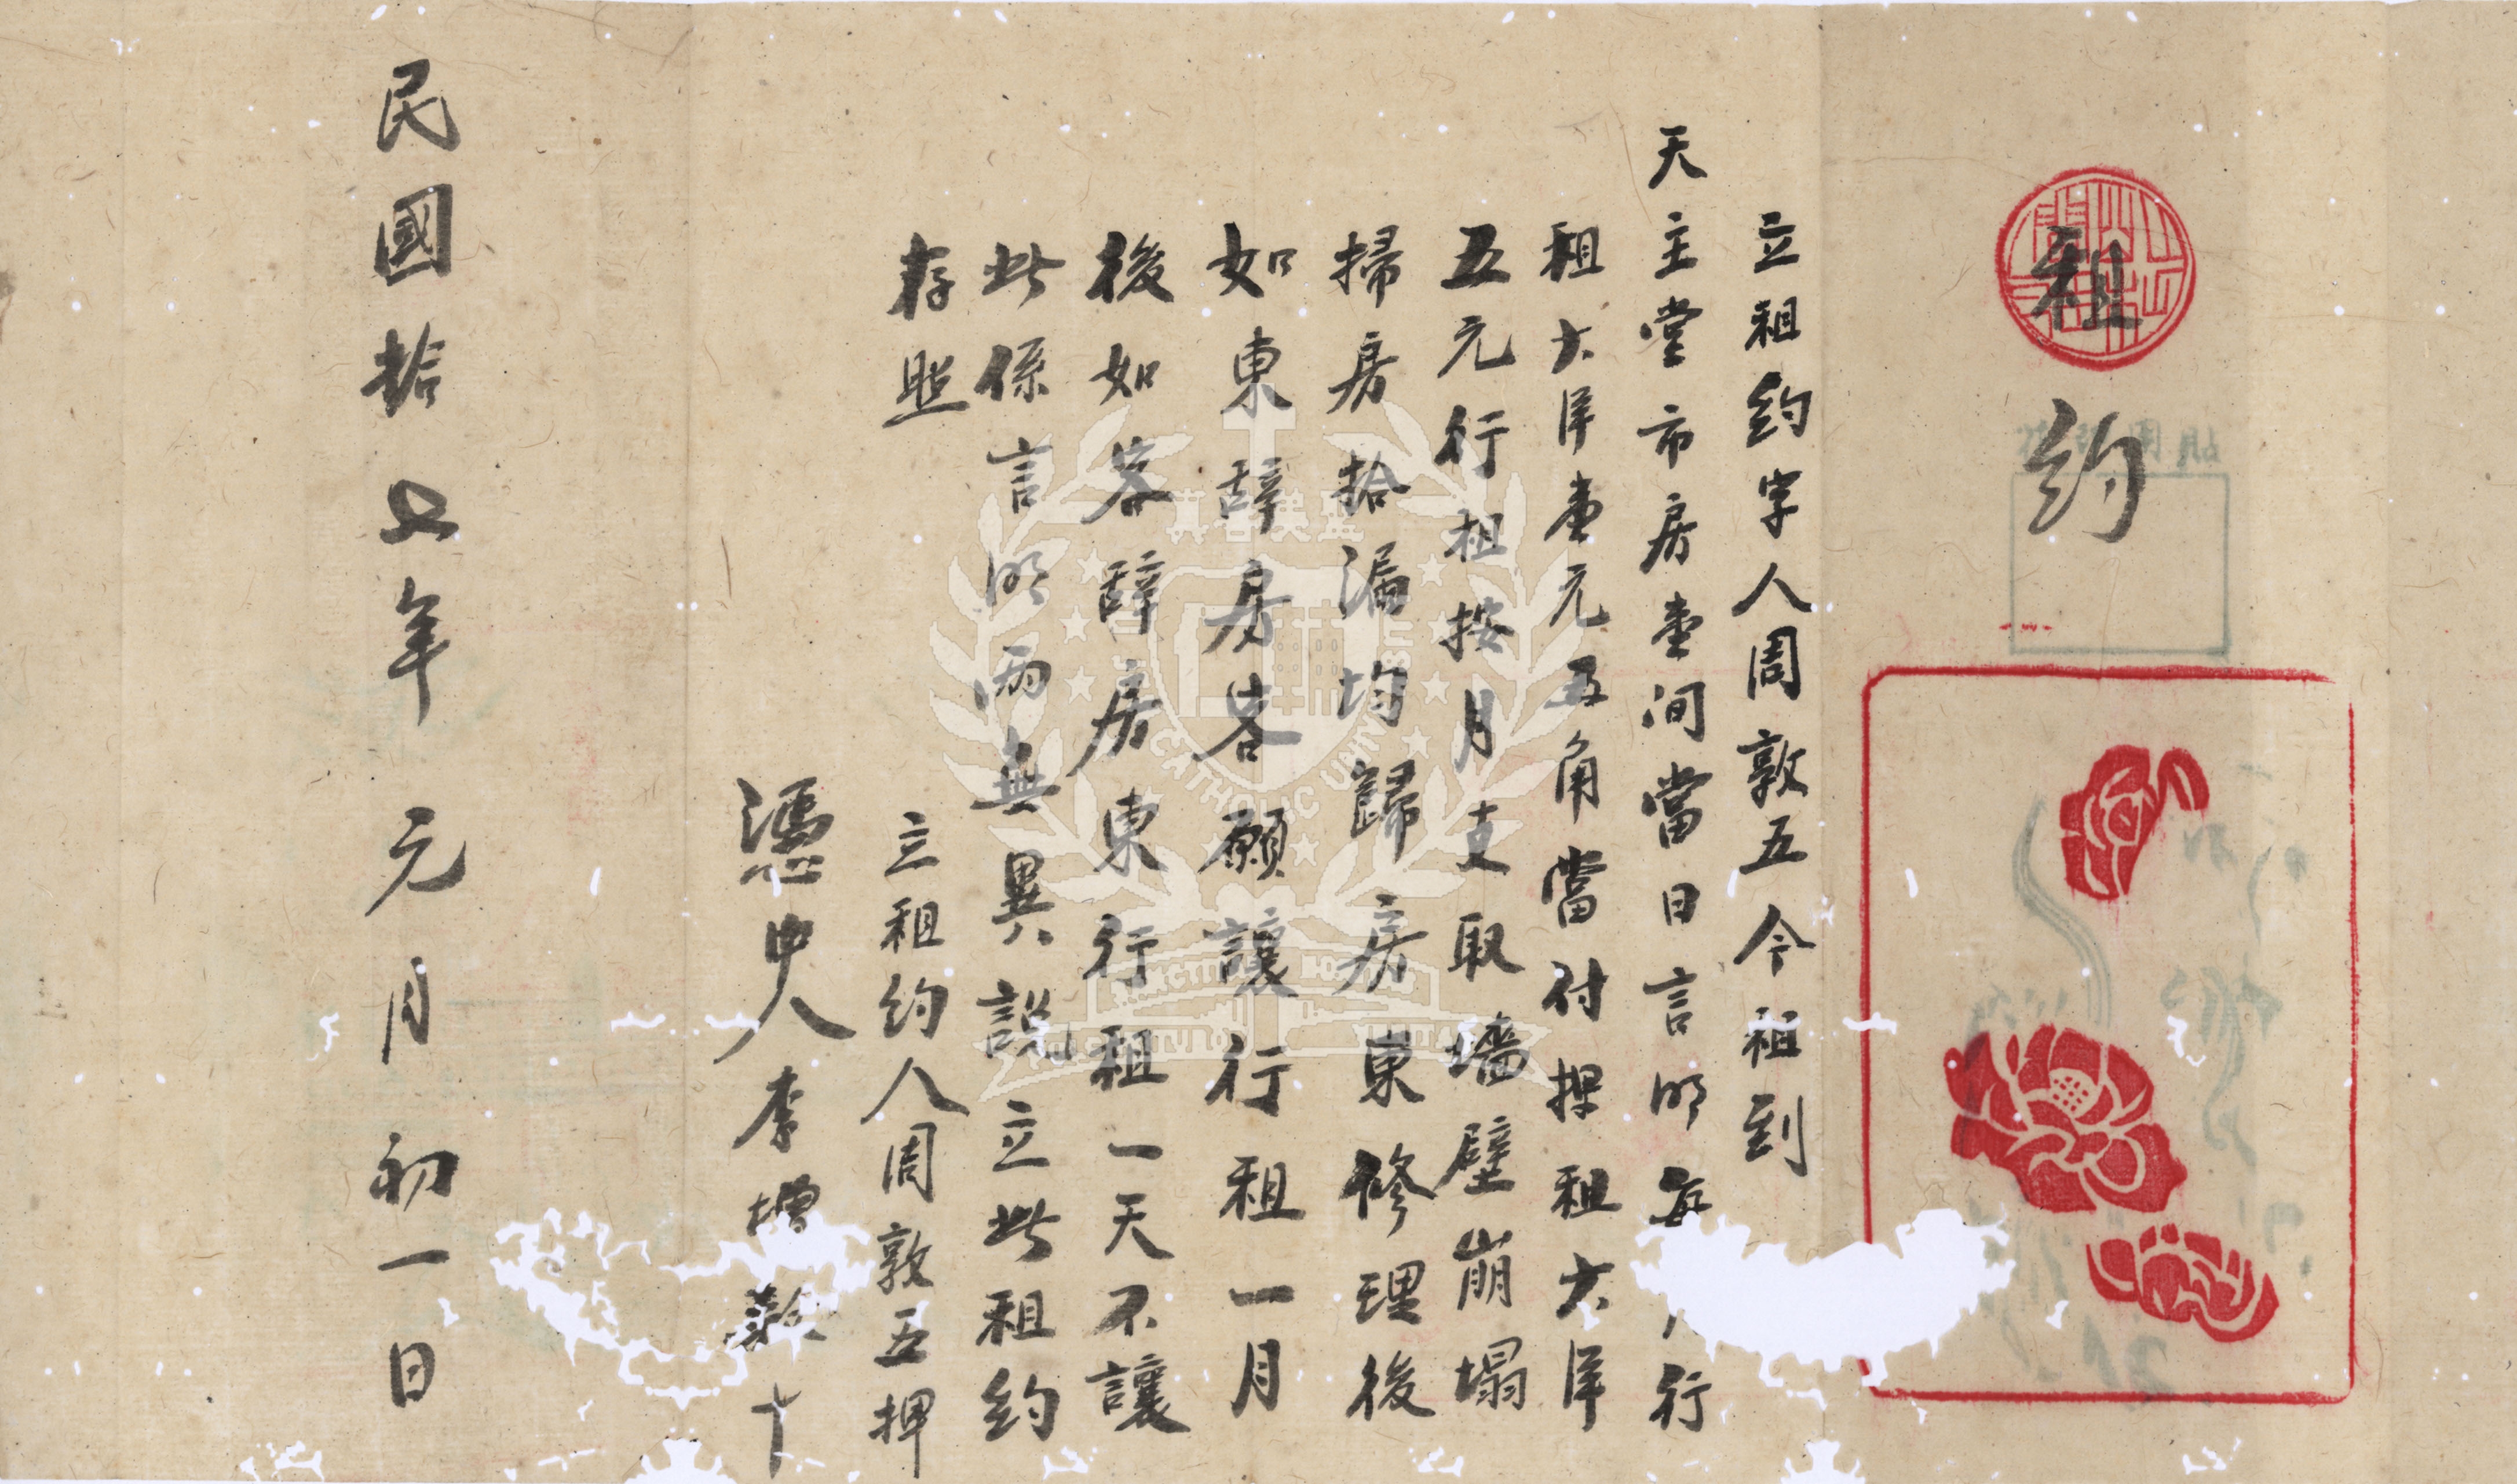 租約
立租約字人周敦五今租到
天主堂市房壹间當日言明每月行
租大洋壹元五角當付押租大洋
五元行租按月支取墙壁崩塌
掃房拾漏均歸房東修理後
如東辞房客願讓行租一月
後如客辞房東行租一天不讓
此係言明両無異説立此租約
存照
立租約人周敦五押
憑中人李增 十
民國拾五年元月初一日
真善美聖
CATHOLIC UNIVERS